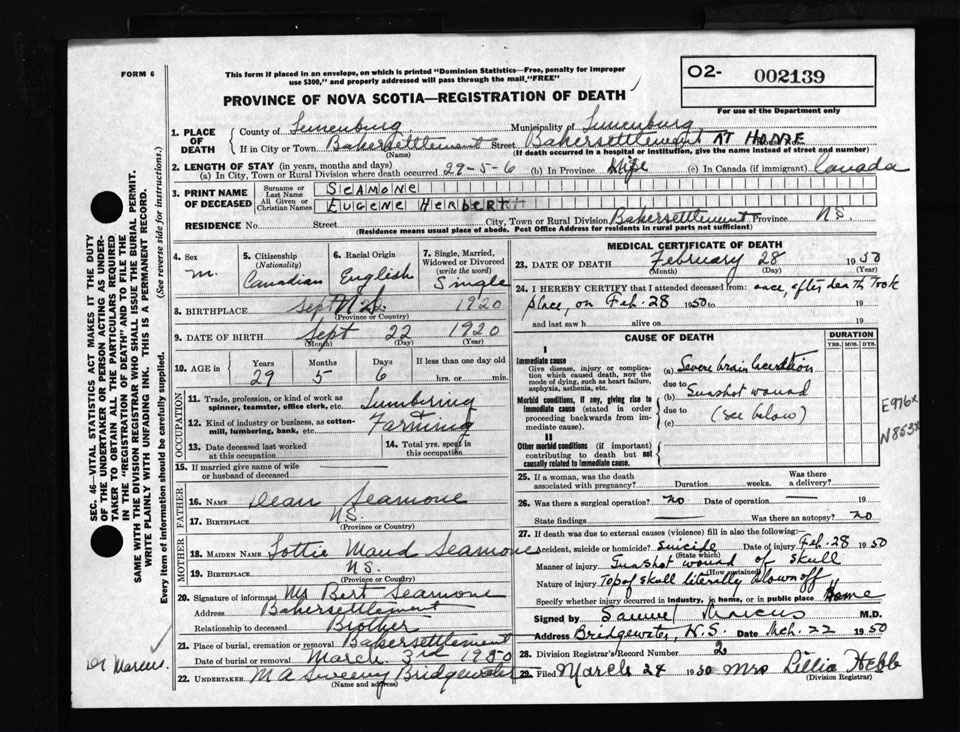 FORM 6
This form if placed in an envelope, on which is printed "Dominion Statistics—Free, penalty for improper
use $300," and properly addressed will pass through the mail, "FREE"
O2- 002139
For use of the Department only
PROVINCE OF NOVA SCOTIA—REGISTRATION OF DEATH
1. PLACE OF DEATH
County of Lunenburg Municipality of Lunenburg
If in City or Town Bakersettlement Street Bakersettlement AT HOME
(Name) (If death occurred in a hospital or institution, give the name instead of street and number)
2. LENGTH OF STAY (in years, months and days)
(a) In City, Town or Rural Division where death occurred 29-5-6 (b) In Province Life (c) In Canada (if immigrant) Canada
3. PRINT NAME OF DECEASED
Surname or Last Name SEAMONE
All Given or Christian Names EUGENE HERBERT
RESIDENCE No. Street City, Town or Rural Division Bakersettlement Province N.S.
(Residence means usual place of abode. Post Office Address for residents in rural parts not sufficient)
4. Sex M.
5. Citizenship (Nationality) Canadian
6. Racial Origin English
7. Single, Married, Widowed or Divorced (write the word) Single
8. BIRTHPLACE Sept 1920
(Province or Country)
9. DATE OF BIRTH Sept 22 1920
(Month) (Day) (Year)
10. AGE in Years Months Days If less than one day old
29 5 6 hrs. or min.
OCCUPATION
11. Trade, profession, or kind of work as spinner, teamster, office clerk, etc. Lumbering
12. Kind of industry or business, as cotton-mill, lumbering, bank, etc. Farming
13. Date deceased last worked at this occupation
14. Total yrs. spent in this occupation
15. If married give name of wife or husband of deceased
FATHER
16. NAME Dean Seamone
17. BIRTHPLACE N.S.
(Province or Country)
MOTHER
18. MAIDEN NAME Lottie Maud Seamone
19. BIRTHPLACE N.S.
(Province or Country)
20. Signature of informant Mr Bert Seamone
Address Bakersettlement
Relationship to deceased Brother
21. Place of burial, cremation or removal Bakersettlement
Date of burial or removal March 3rd 1950
22. UNDERTAKER M A Sweeny Bridgewater
(Name and address)
MEDICAL CERTIFICATE OF DEATH
23. DATE OF DEATH February 28 1950
(Month) (Day) (Year)
24. I HEREBY CERTIFY that I attended deceased from: once, after death took
place, on Feb. 28 1950 to 19
and last saw h alive on 19
CAUSE OF DEATH
DURATION
YRS. MOS. DYS.
I
Immediate cause
Give disease, injury or complication which caused death, NOT the mode of dying, such as heart failure, asphyxia, asthenia, etc.
(a) Severe brain laceration
due to
Morbid conditions, if any, giving rise to immediate cause (stated in order proceeding backwards from immediate cause).
(b) Gunshot wound
due to (see below)
(c)
II
Other morbid conditions (if important) contributing to death but not causally related to immediate cause.
E976x
N853x
25. If a woman, was the death associated with pregnancy? Duration weeks. Was there a delivery?
26. Was there a surgical operation? no Date of operation
State findings Was there an autopsy? no
27. If death was due to external causes (violence) fill in also the following:—
Accident, suicide or homicide? suicide Date of injury Feb. 28 1950
(State which)
Manner of injury Gunshot wound of skull
(How sustained)
Nature of injury Top of skull literally blown off
Specify whether injury occurred in industry, in home, or in public place Home
Signed by Samuel Marcus M.D.
Address Bridgewater, N.S. Date Mch. 22 1950
28. Division Registrar's Record Number 2
29. Filed March 24 1950 Mrs Lillia Hebb
(Division Registrar)
SEC. 46—VITAL STATISTICS ACT MAKES IT THE DUTY
OF THE UNDERTAKER OR PERSON ACTING AS UNDER-
TAKER TO OBTAIN ALL THE PARTICULARS REQUIRED
IN THE "REGISTRATION OF DEATH" AND TO FILE THE
SAME WITH THE DIVISION REGISTRAR WHO SHALL ISSUE THE BURIAL PERMIT.
WRITE PLAINLY WITH UNFADING INK. THIS IS A PERMANENT RECORD.
Every item of information should be carefully supplied. (See reverse side for instructions.)
Dr Marcus.